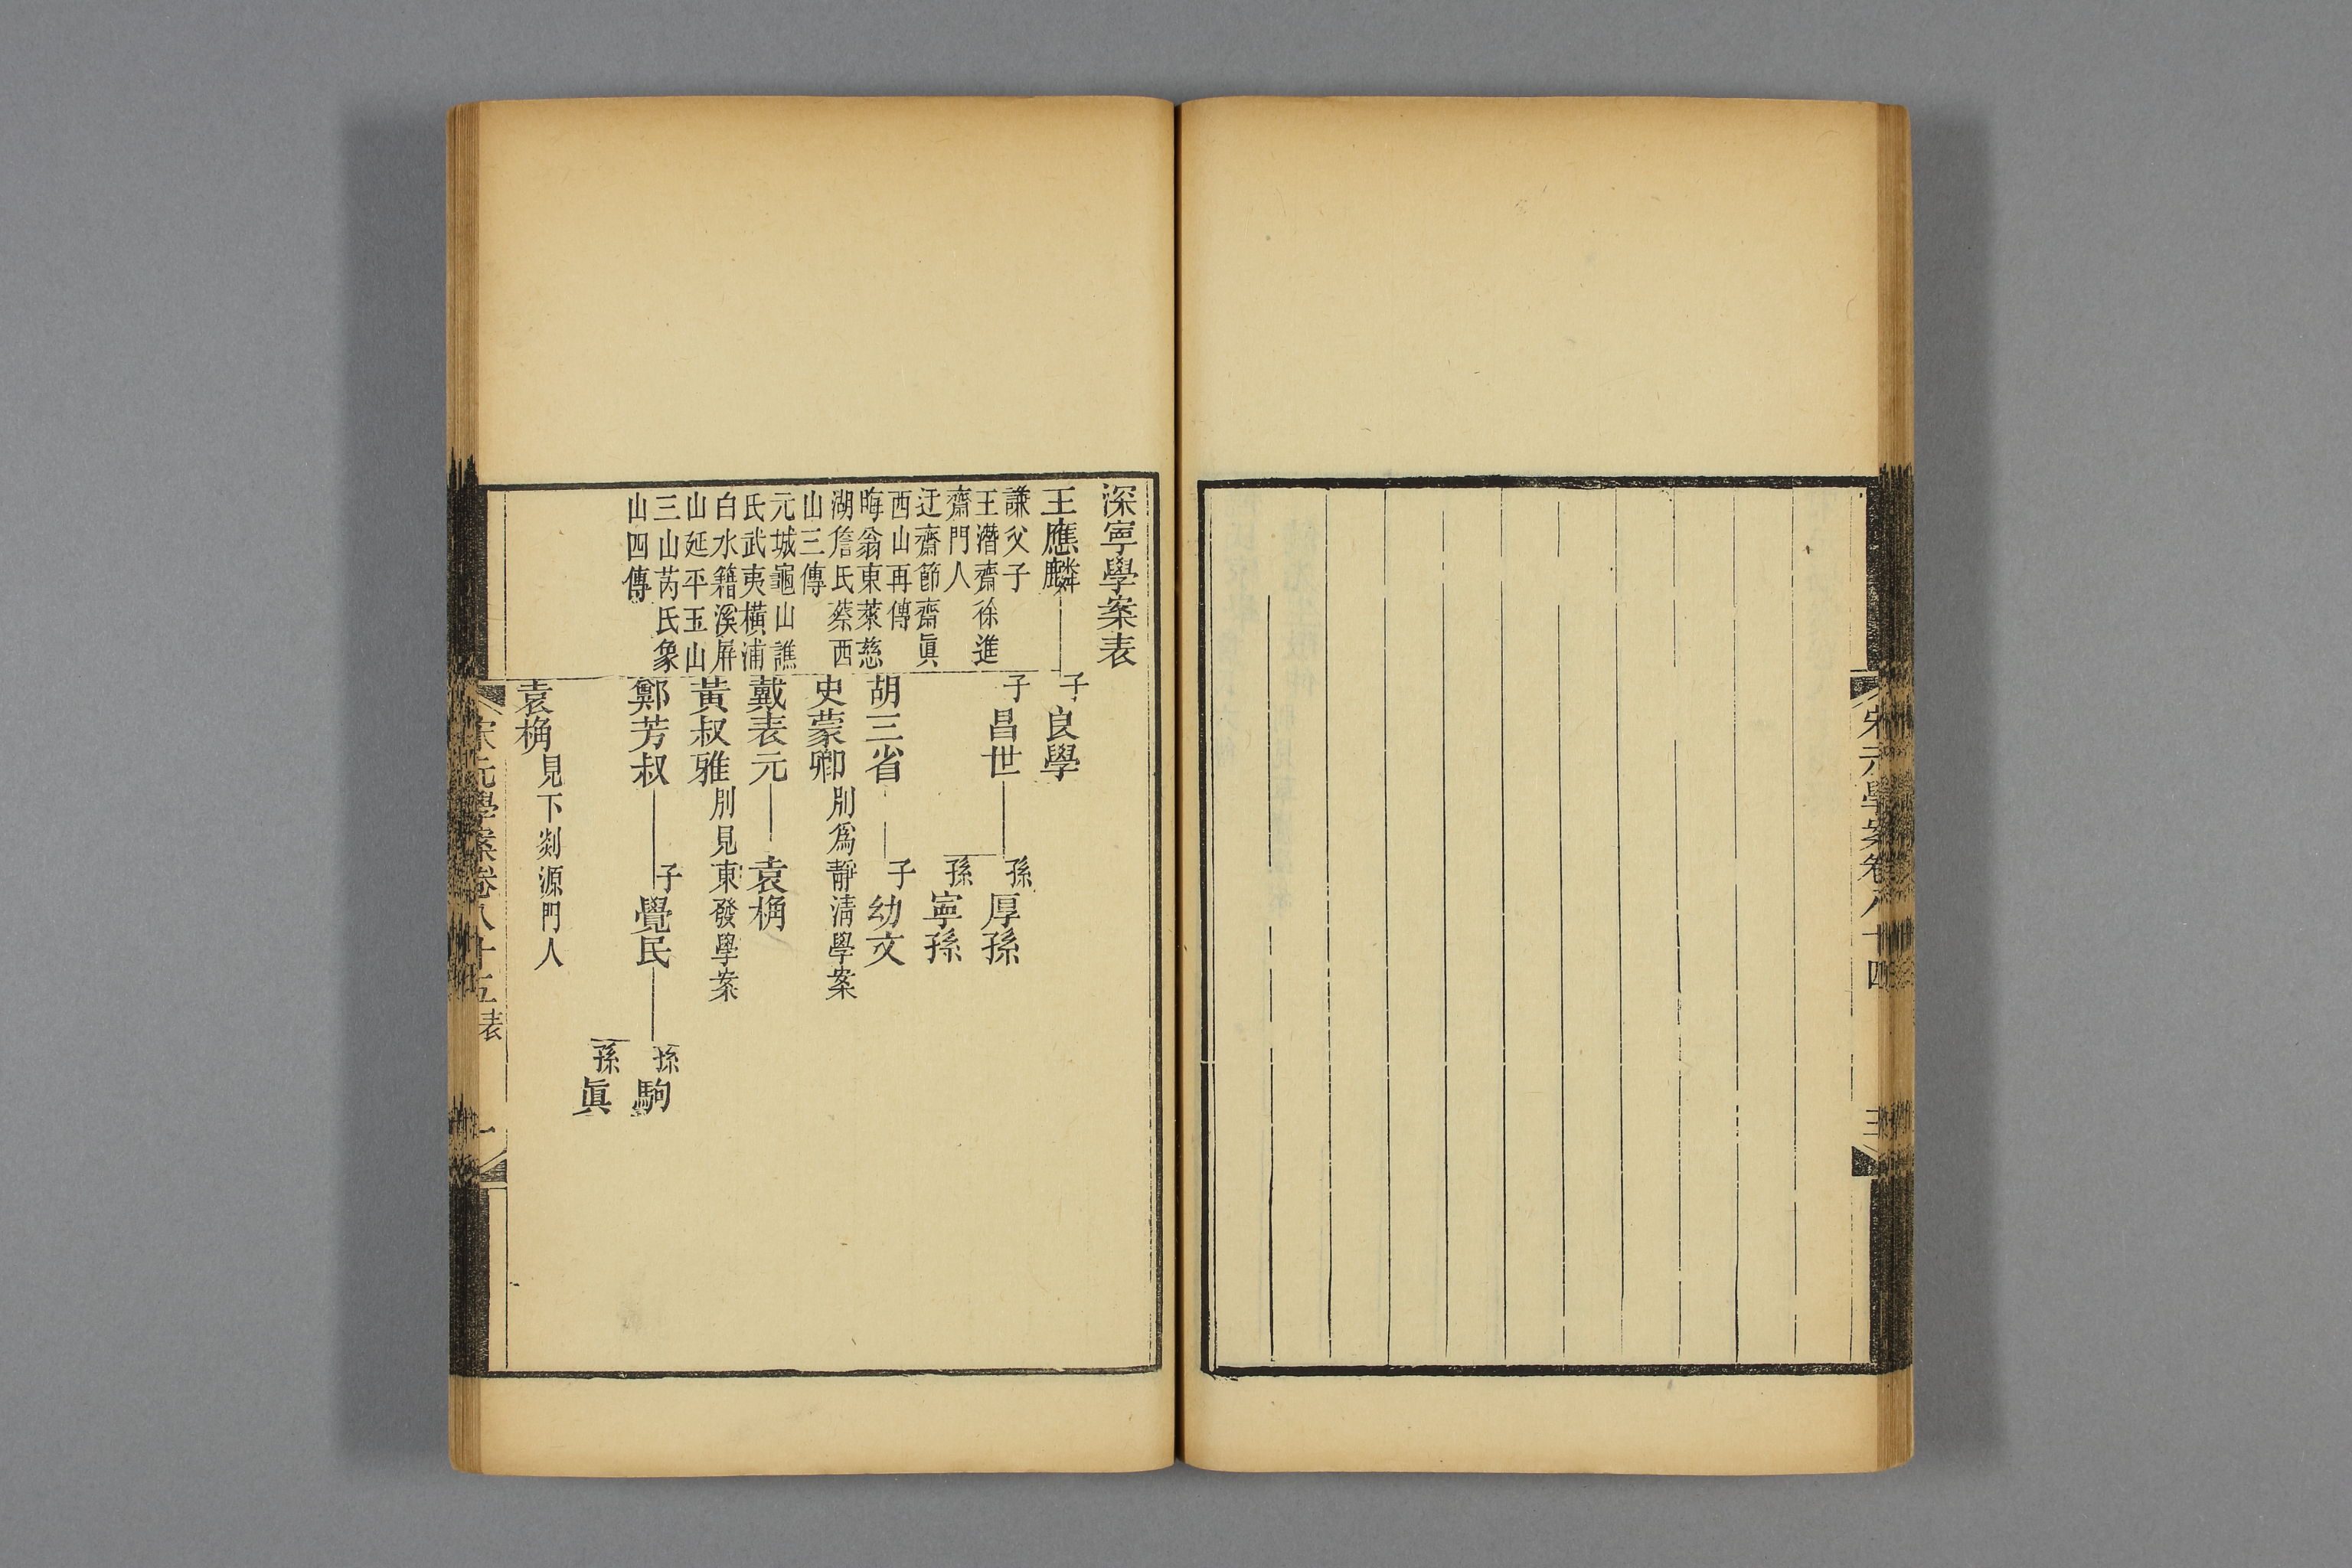 宋元學案卷八十四
三
深寧學案表
王應麟
謙父子
王潛齋徐進
齋門人
迂齋節齋眞
西山再傳
晦翁東萊慈
湖詹氏蔡西
山三傳
元城龜山譙
氏武夷橫浦
白水籍溪屏
山延平玉山
三山芮氏象
山四傳
子良學
子昌世
孫厚孫
孫寧孫
胡三省
子幼文
史蒙卿別爲靜淸學案
戴表元
袁桷
黃叔雅別見東發學案
鄭芳叔
子覺民
孫駒
孫眞
袁桷見下剡源門人
宋元學案卷八十五表
一